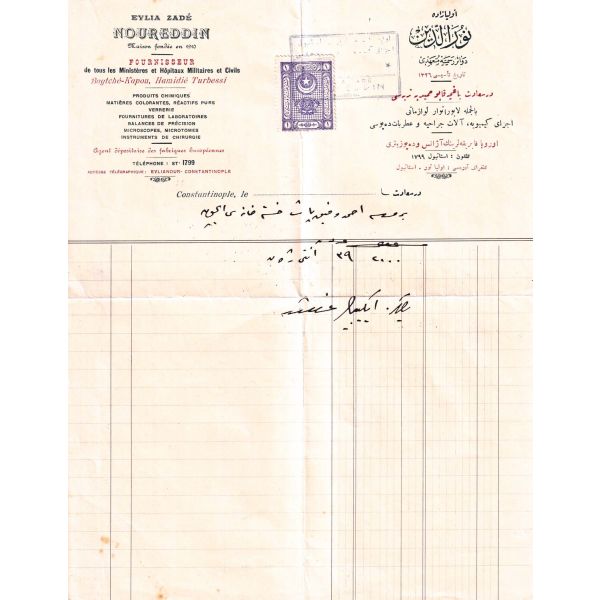 EYLIA ZADÉ
NOUREDDIN
Maison fondée en 1910
FOURNISSEUR
de tous les Ministères et Hôpitaux Militaires et Civils
Bagtché-Kapou, Hamidié Turbessi
PRODUITS CHIMIQUES
MATIÈRES COLORANTES, RÉACTIFS PURS
VERRERIE
FOURNITURES DE LABORATOIRES
BALANCES DE PRÉCISION
MICROSCOPES, MICROTOMES
INSTRUMENTS DE CHIRURGIE
Agent dépositaire des fabriques Européennes
TÉLÉPHONE : ST 1799
ADRESSE TÉLÉGRAPHIQUE : EYLIANOUR-CONSTANTINOPLE
اوليازاده
نورالدين
دوائر رسميه متعهدى
تاريخ تأسيس ١٣٢٦
درسعادت باغچه قاپو حميديه تربه سى
بالجمله لابوراتوار لوازماتى
اجزاى كيميويه، آلات جراحيه و عطريات ده پوسى
اوروپا فابريقه لرينك آژانس و ده پوزيترى
تلفون : استانبول ١٧٩٩
تلغراف آدرسى : اوليا نور - استانبول
Constantinople, le
درسعادت
احمد وفيق پاشا خسته خانه سى
٢٠٠٠ ٣٩